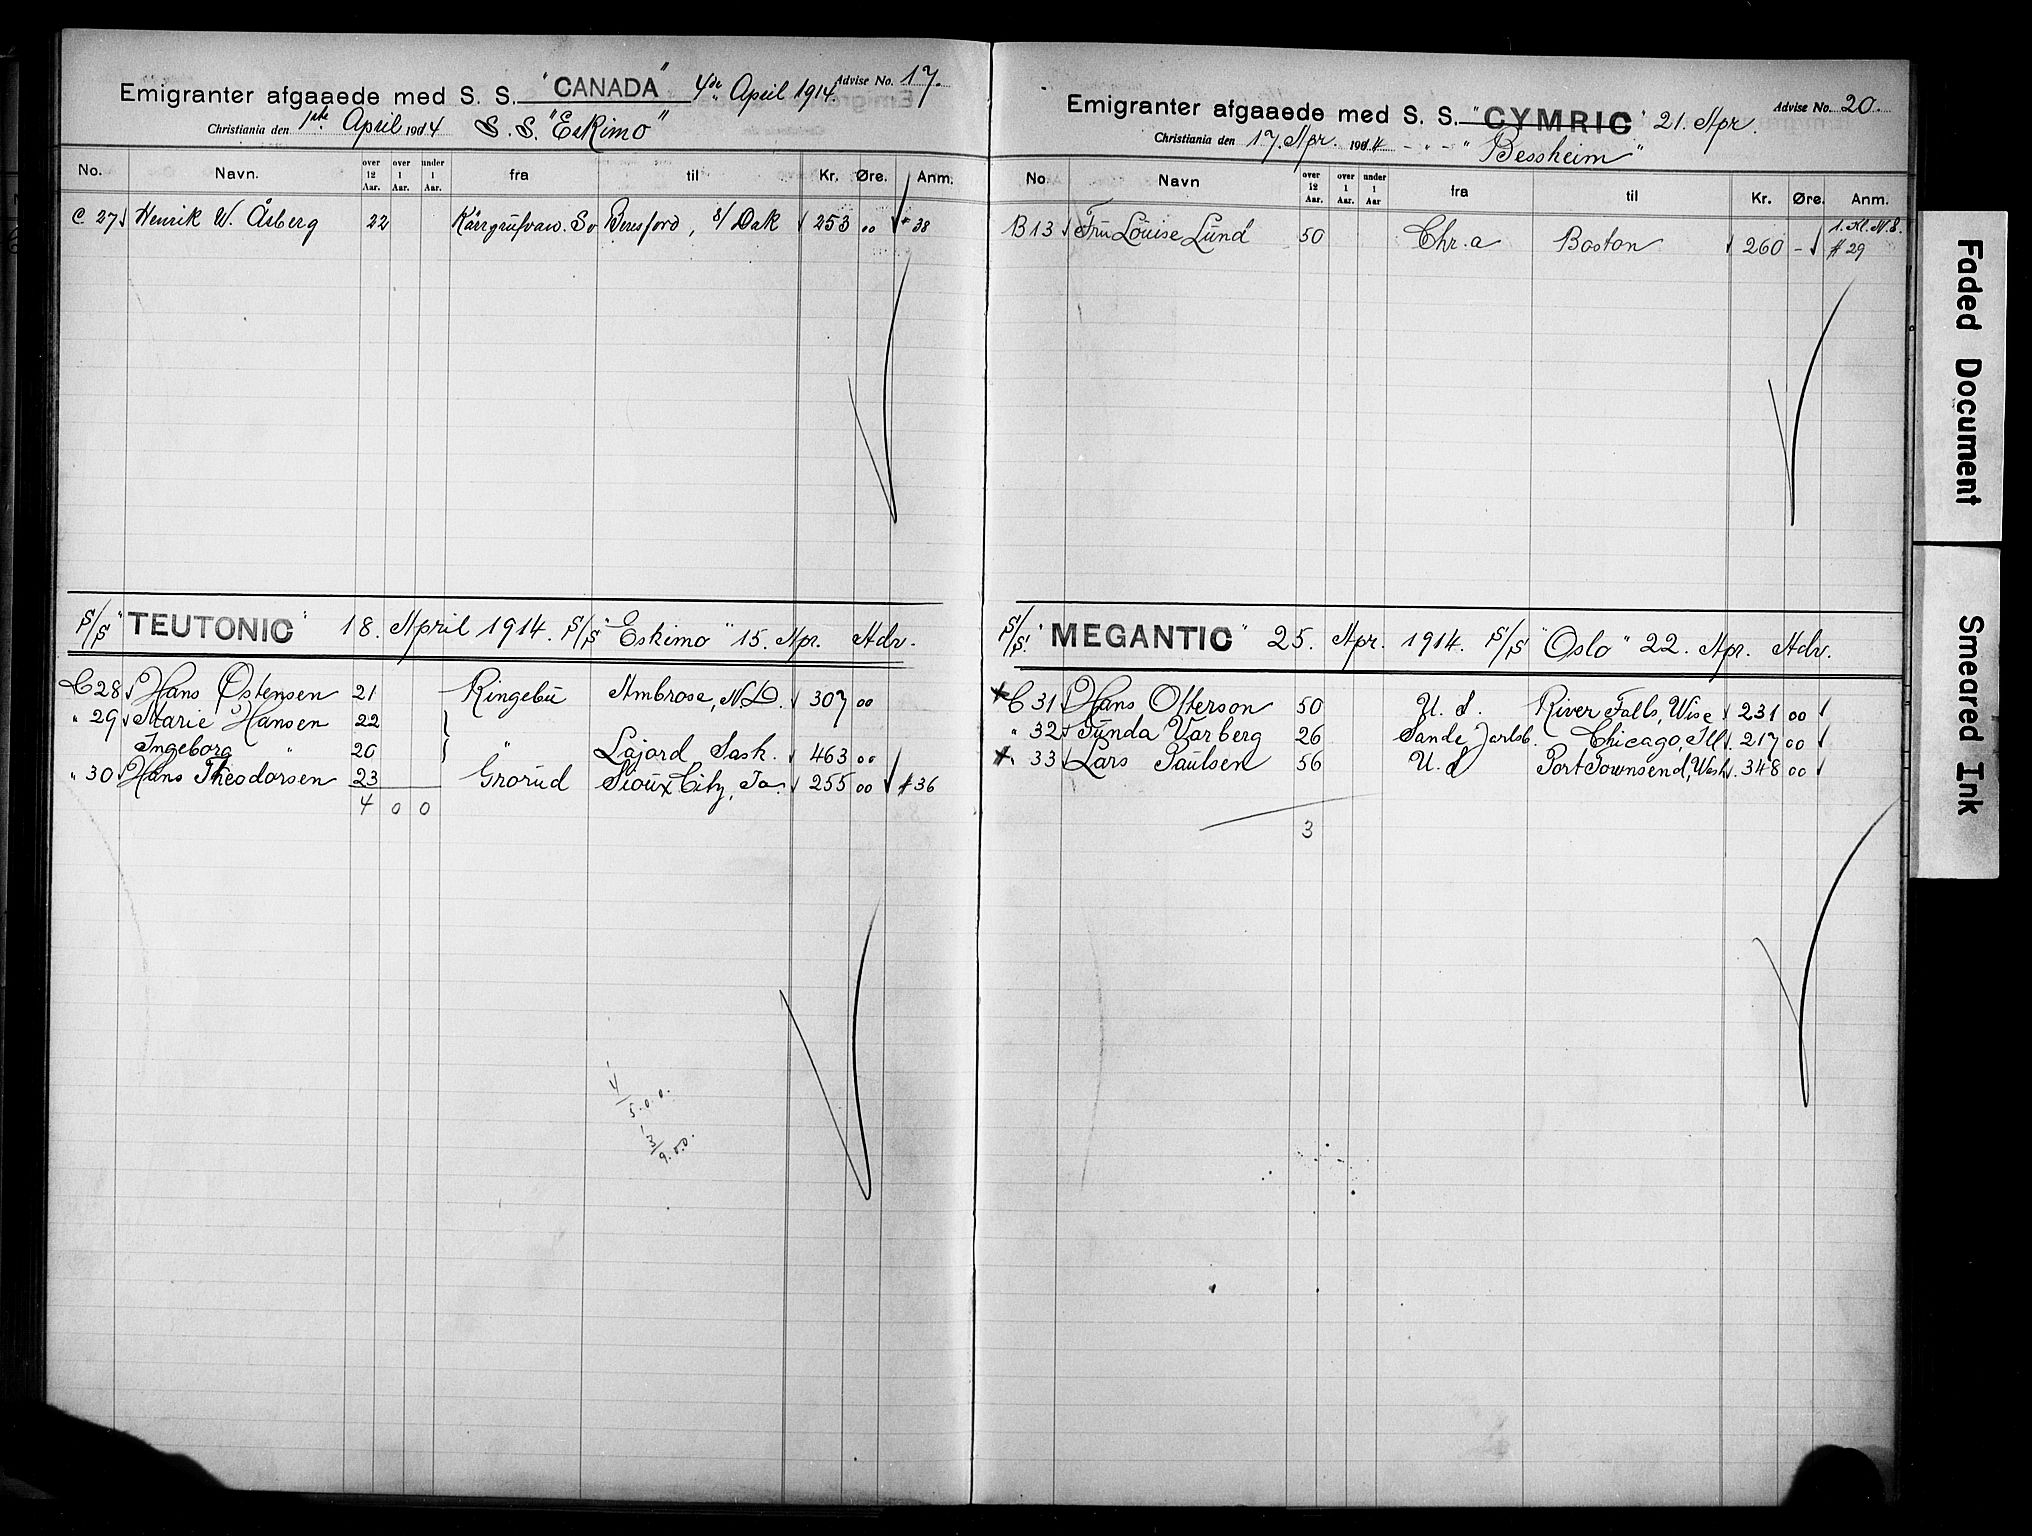 Emigranter afgaaede med S. S. "CANADA" 4de April 1914 Advise No. 17.
Christiania den 1ste April 1914 S. S. "Eskimo"
No. Navn. over 12 Aar. over 1 Aar. under 1 Aar. fra til Kr. Øre. Anm.
C 27 Henrik W. Åsberg 22 Beresford, S/ Dak 253 00 # 38
S/S "TEUTONIC" 18. April 1914. S/S "Eskimo" 15. Apr. Adv.
C 28 Hans Østensen 21 Ringebu Ambrose, N.D. 307 00
" 29 Marie Hansen 22
Ingeborg " 20 " Lajord Sask. 463 00
" 30 Hans Theodorsen 23 Grorud Sioux City, Ia. 255 00 # 36
4 0 0
4/5.0.0.
3/9.50.
Emigranter afgaaede med S. S. "CYMRIC" 21. Apr. Advise No. 20.
Christiania den 17. Apr. 1914 - " - "Bessheim"
No. Navn over 12 Aar. over 1 Aar. under 1 Aar fra til Kr. Øre. Anm.
1. Kl. N.S.
B 13 Fru Louise Lund 50 Chr.a Boston 260 - # 29
S/S. "MEGANTIC" 25. Apr. 1914. S/S "Oslo" 22. Apr. Adv.
C 31 Hans Otterson 50 U. S. River Falls, Wisc 231 00
" 32 Gunda Varberg 26 Sande Jarlsb. Chicago, Ill. 217 00
" 33 Lars Paulsen 56 U. S Port Townsend, Wash. 348 00
3
Faded Document
Smeared Ink